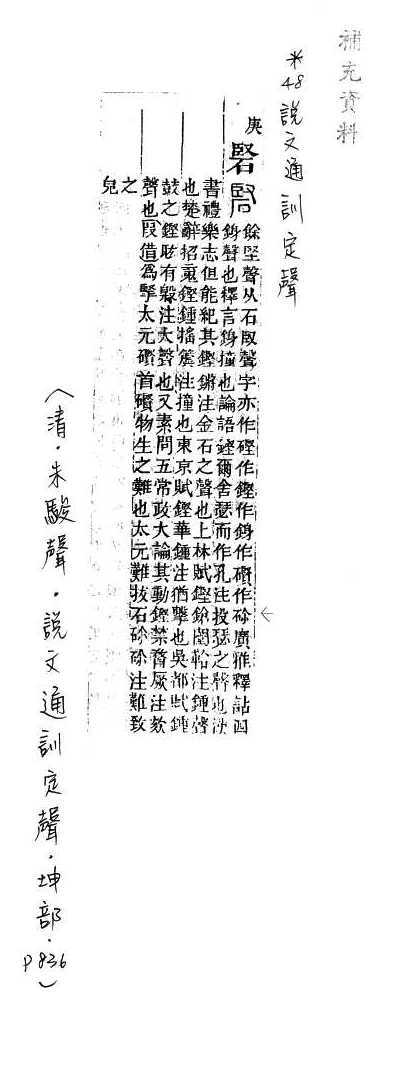 補充資料
*48說文通訓定聲
庚
硻
餘堅聲从石臤聲字亦作硜作鏗作銵作礥作硍廣雅釋詁四
銵聲也釋言銵撞也論語鏗爾舍瑟而作孔注投瑟之聲也漢
書禮樂志但能紀其鏗鏘注金石之聲也上林賦鏗鎗闛鞈注鍾聲
也楚辭招䰟鏗鍾搖簴注撞也東京賦鏗華鐘注猶擊也吳都賦鍾
鼓之鏗耾有毀注大聲也又素問五常政大論其動鏗禁瞀厥注欬
聲也叚借爲掔太元礥首礥物生之難也太元難拔石硍硍注難致
之
皃
(清.朱駿聲.說文通訓定聲.坤部.p836)